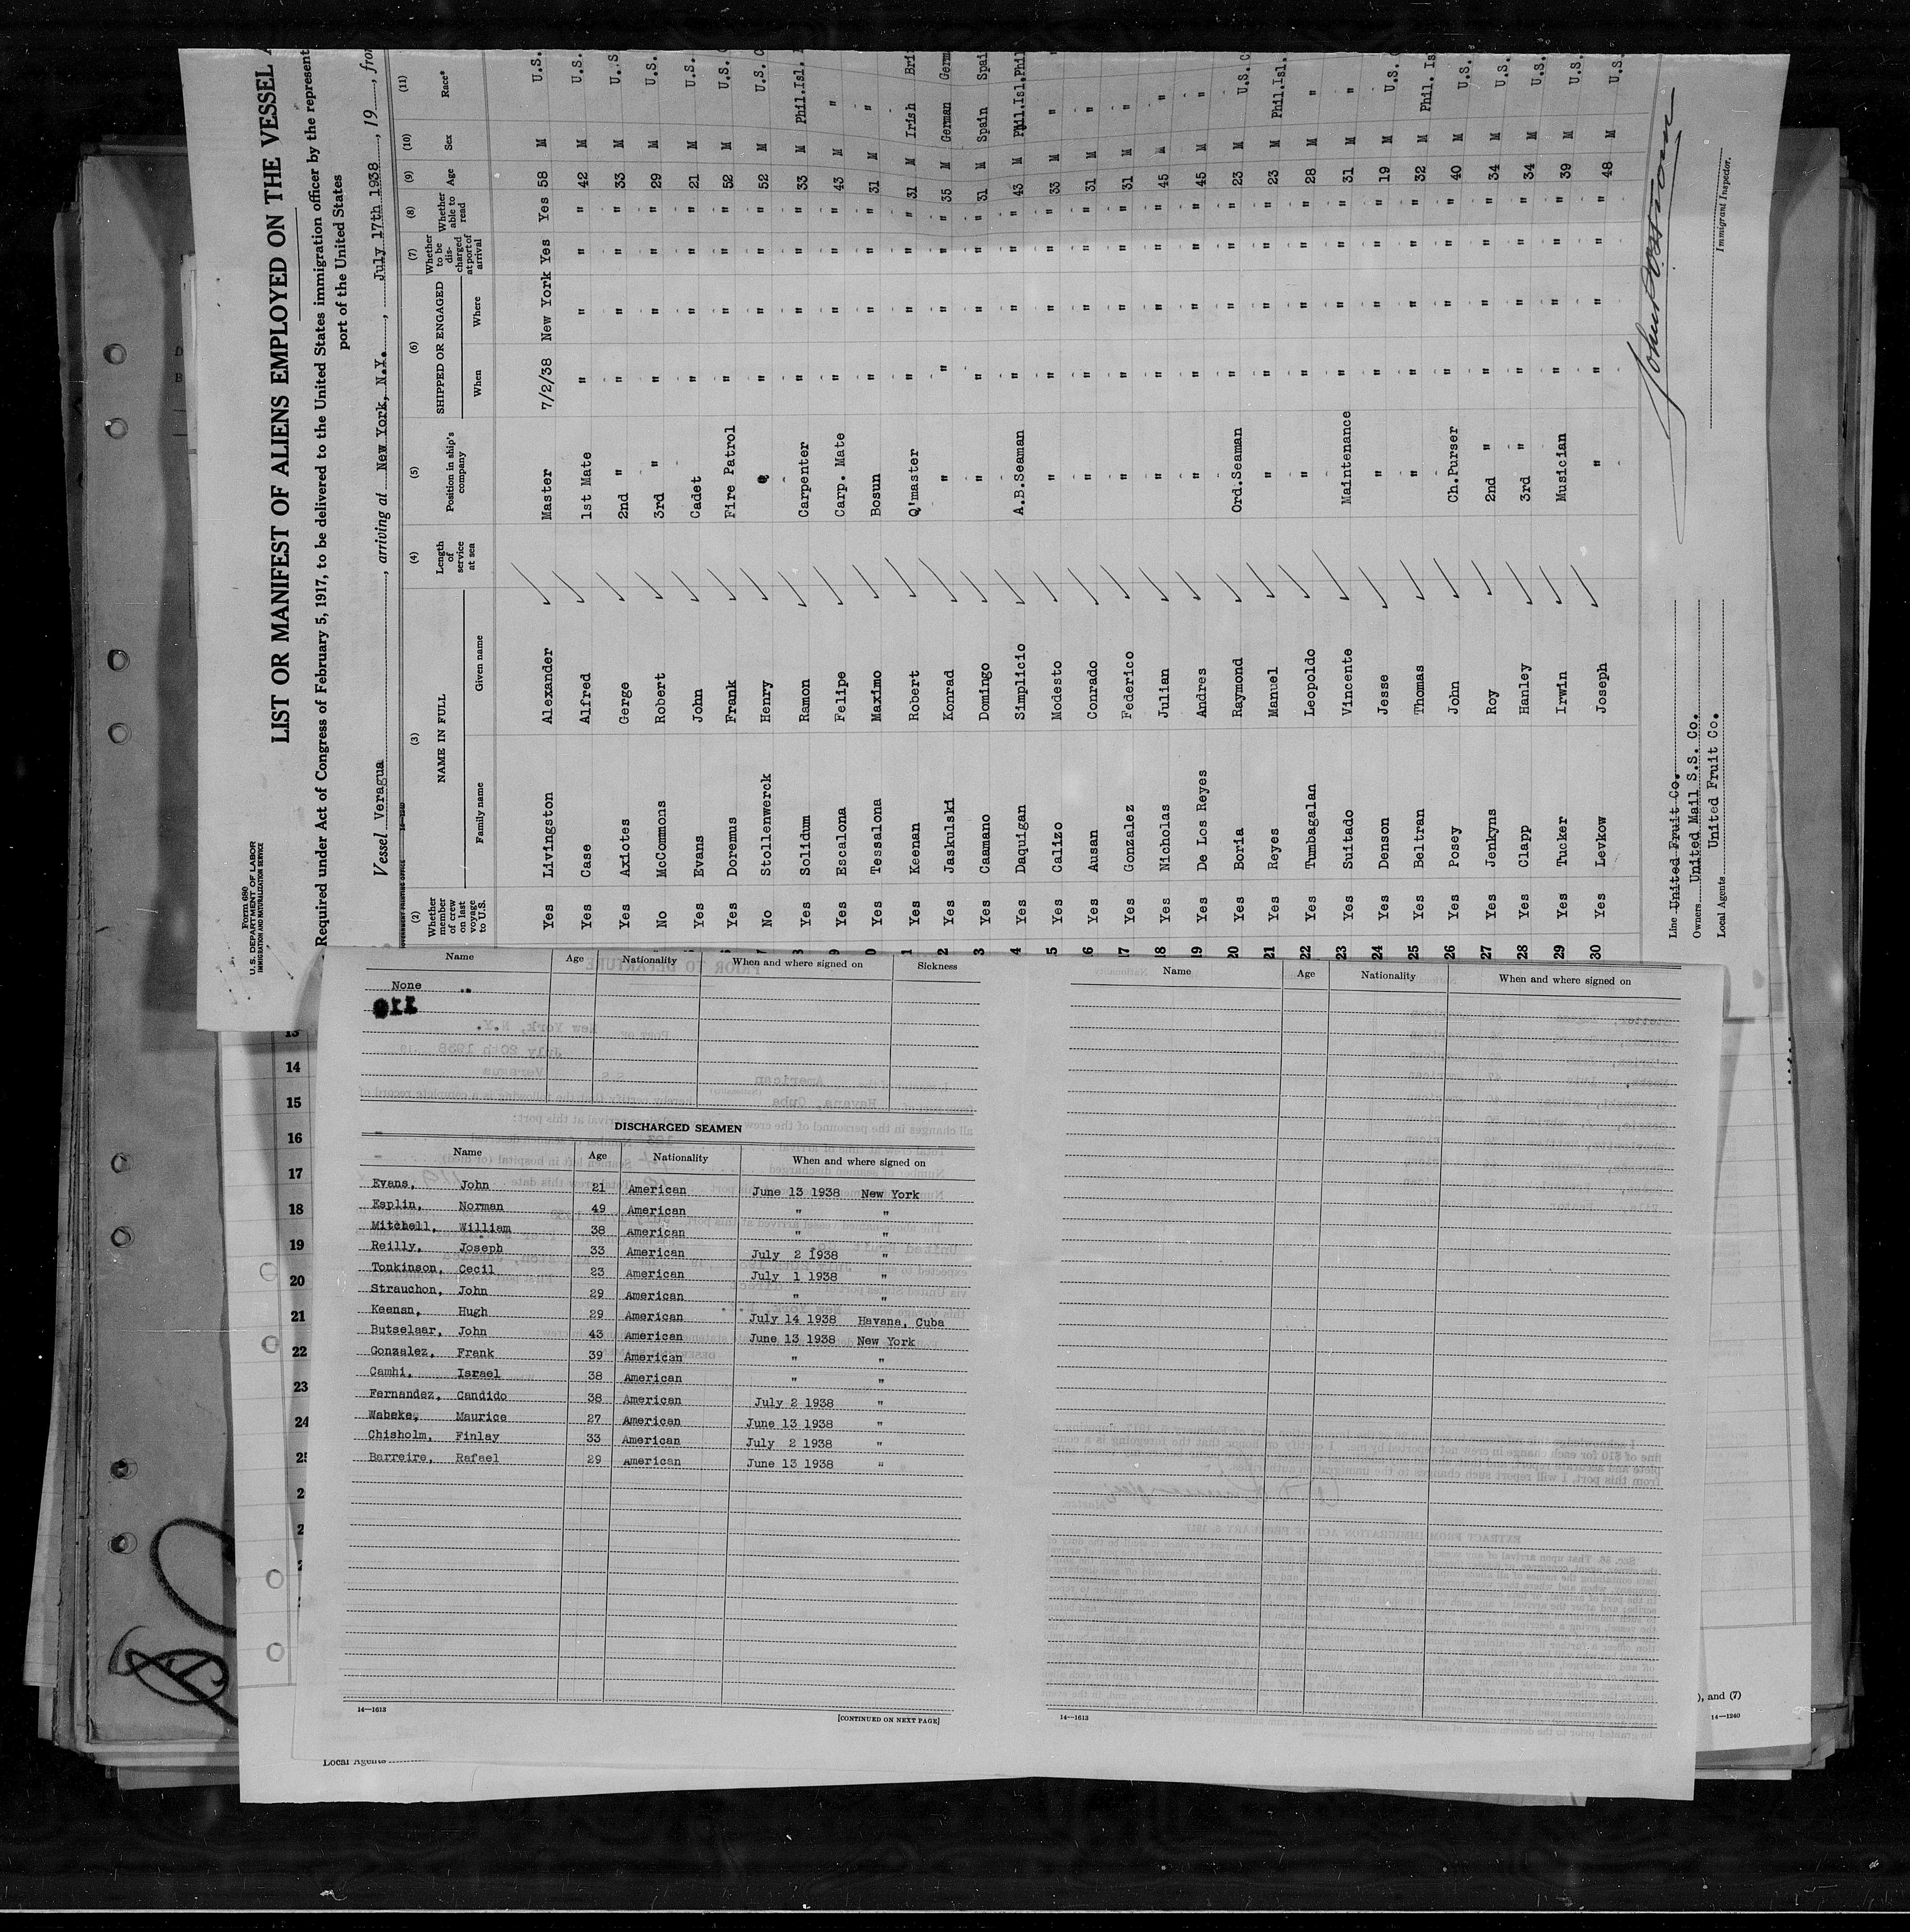 Form 680
U.S. DEPARTMENT OF LABOR
IMMIGRATION AND NATURALIZATION SERVICE
LIST OR MANIFEST OF ALIENS EMPLOYED ON THE VESSEL
Required under Act of Congress of February 5, 1917, to be delivered to the United States immigration officer by the represent
port of the United States
Vessel Veragua, arriving at New York, N.Y., July 17th 1938, 19, from
(2) (3) (4) (5) (6) (7) (8) (9) (10) (11)
Whether member of crew on last voyage to U.S. NAME IN FULL Family name Given name Length of service at sea Position in ship's company SHIPPED OR ENGAGED When Where Whether to be discharged at port of arrival Whether able to read Age Sex Race*
Yes Livingston Alexander Master 7/2/38 New York Yes Yes 58 M U.S.
Yes Case Alfred 1st Mate " " " " 42 M U.S.
Yes Axiotes Gerge 2nd " " " " " 33 M U.S
No McCommons Robert 3rd " " " " " 29 M U.S.
Yes Evans John Cadet " " " " 21 M U.S.
Yes Doremus Frank Fire Patrol " " " " 52 M U.S.
No Stollenwerck Henry " " " " 52 M U.S. C
Yes Solidum Ramon Carpenter " " " " 33 M Phil.Isl.
Yes Escalona Felipe Carp. Mate " " " " 43 M "
Yes Tessalona Maximo Bosun " " " " 31 M "
Yes Keenan Robert Q'master " " " " 31 M Irish Bri
Yes Jaskulski Konrad " " " " " 35 M German Germ
Yes Caamano Domingo " " " " " 31 M Spain Spai
Yes Daquigan Simplicio A.B.Seaman " " " " 43 M Phil.Isl.Phil
Yes Calizo Modesto " " " " " 33 M "
Yes Ausan Conrado " " " " " 31 M "
Yes Gonzalez Federico " " " " " 31 M "
18 Yes Nicholas Julian " " " " " 45 M "
19 Yes De Los Reyes Andres " " " " " 45 M "
20 Yes Boria Raymond Ord.Seaman " " " " 23 M U.S. C
21 Yes Reyes Manuel " " " " " 23 M Phil.Isl.
22 Yes Tumbagalan Leopoldo " " " " " 28 M "
23 Yes Suitado Vincente Maintenance " " " " 31 M "
24 Yes Denson Jesse " " " " " 19 M U.S.
25 Yes Beltran Thomas " " " " " 32 M Phil. Is
26 Yes Posey John Ch.Purser " " " " 40 M U.S.
27 Yes Jenkyns Roy 2nd " " " " " 34 M U.S.
28 Yes Clapp Hanley 3rd " " " " " 34 M U.S.
29 Yes Tucker Irwin Musician " " " " 39 M U.S.
30 Yes Levkow Joseph " " " " " 48 M U.S.
Line United Fruit Co.
Owners United Mail S.S. Co.
Local Agents United Fruit Co.
Immigrant Inspector.
Name Age Nationality When and where signed on Sickness
None
DISCHARGED SEAMEN
Name Age Nationality When and where signed on
Evans, John 21 American June 13 1938 New York
Esplin, Norman 49 American " "
Mitchell, William 38 American " "
Reilly, Joseph 33 American July 2 1938 "
Tonkinson, Cecil 23 American July 1 1938 "
Strauchon, John 29 American " "
Keenan, Hugh 29 American July 14 1938 Havana, Cuba
Butselaar, John 43 American June 13 1938 New York
Gonzalez, Frank 39 American " "
Camhi, Israel 38 American " "
Fernandez, Candido 38 American July 2 1938 "
Wabeke, Maurice 27 American June 13 1938 "
Chisholm, Finlay 33 American July 2 1938 "
Barreire, Rafael 29 American June 13 1938 "
14—1613
[CONTINUED ON NEXT PAGE]
Name Age Nationality When and where signed on
14—1613
13
14
15
16
17
18
19
20
21
22
23
24
25
Local Agents
), and (7)
14—1240